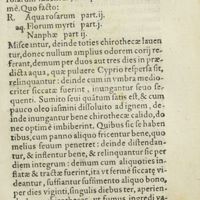 mē. Quo facto:
R. Aquarosarum part.ij.
aq. Florum myrti part.j.
Nanphæ part ij.
Misceantur, deinde toties chirothecæ lauen
tur, donec nullum amplius odorem corij re-
ferant, demum per duos aut tres dies in præ-
dicta aqua, quæ puluere Cyprio resperſa ſit,
relinquantur: deinde cum in vmbra medio-
criter ſiccatæ fuerint, inungantur ſeuo ſe-
quenti. Sumito ſeui quátum ſatis eſt, & cum
pauco oleo iaſmini diſſoluito ad ignem, de-
inde inungantur bene chirothecæ calido, do
nec optimè imbiberint. Quibus ſic ſe haben
tibus, cum panno aliquo fricentur bene, quo
melius ſeuum penetret: deinde diſtendan-
tur, & inſtentur bene, & relinquantur ſic per
diem integrum: demum cum aliquoties in-
flatæ & tractæ fuerint, ita vt fermè ſiccatæ vi
deantur, ſuffiantur ſuffimento aliquo bono,
per dies viginti, ſingulis diebus ter, aperien-